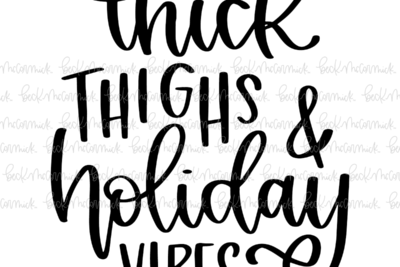 thick
THIGHS &
holiday
VIBES